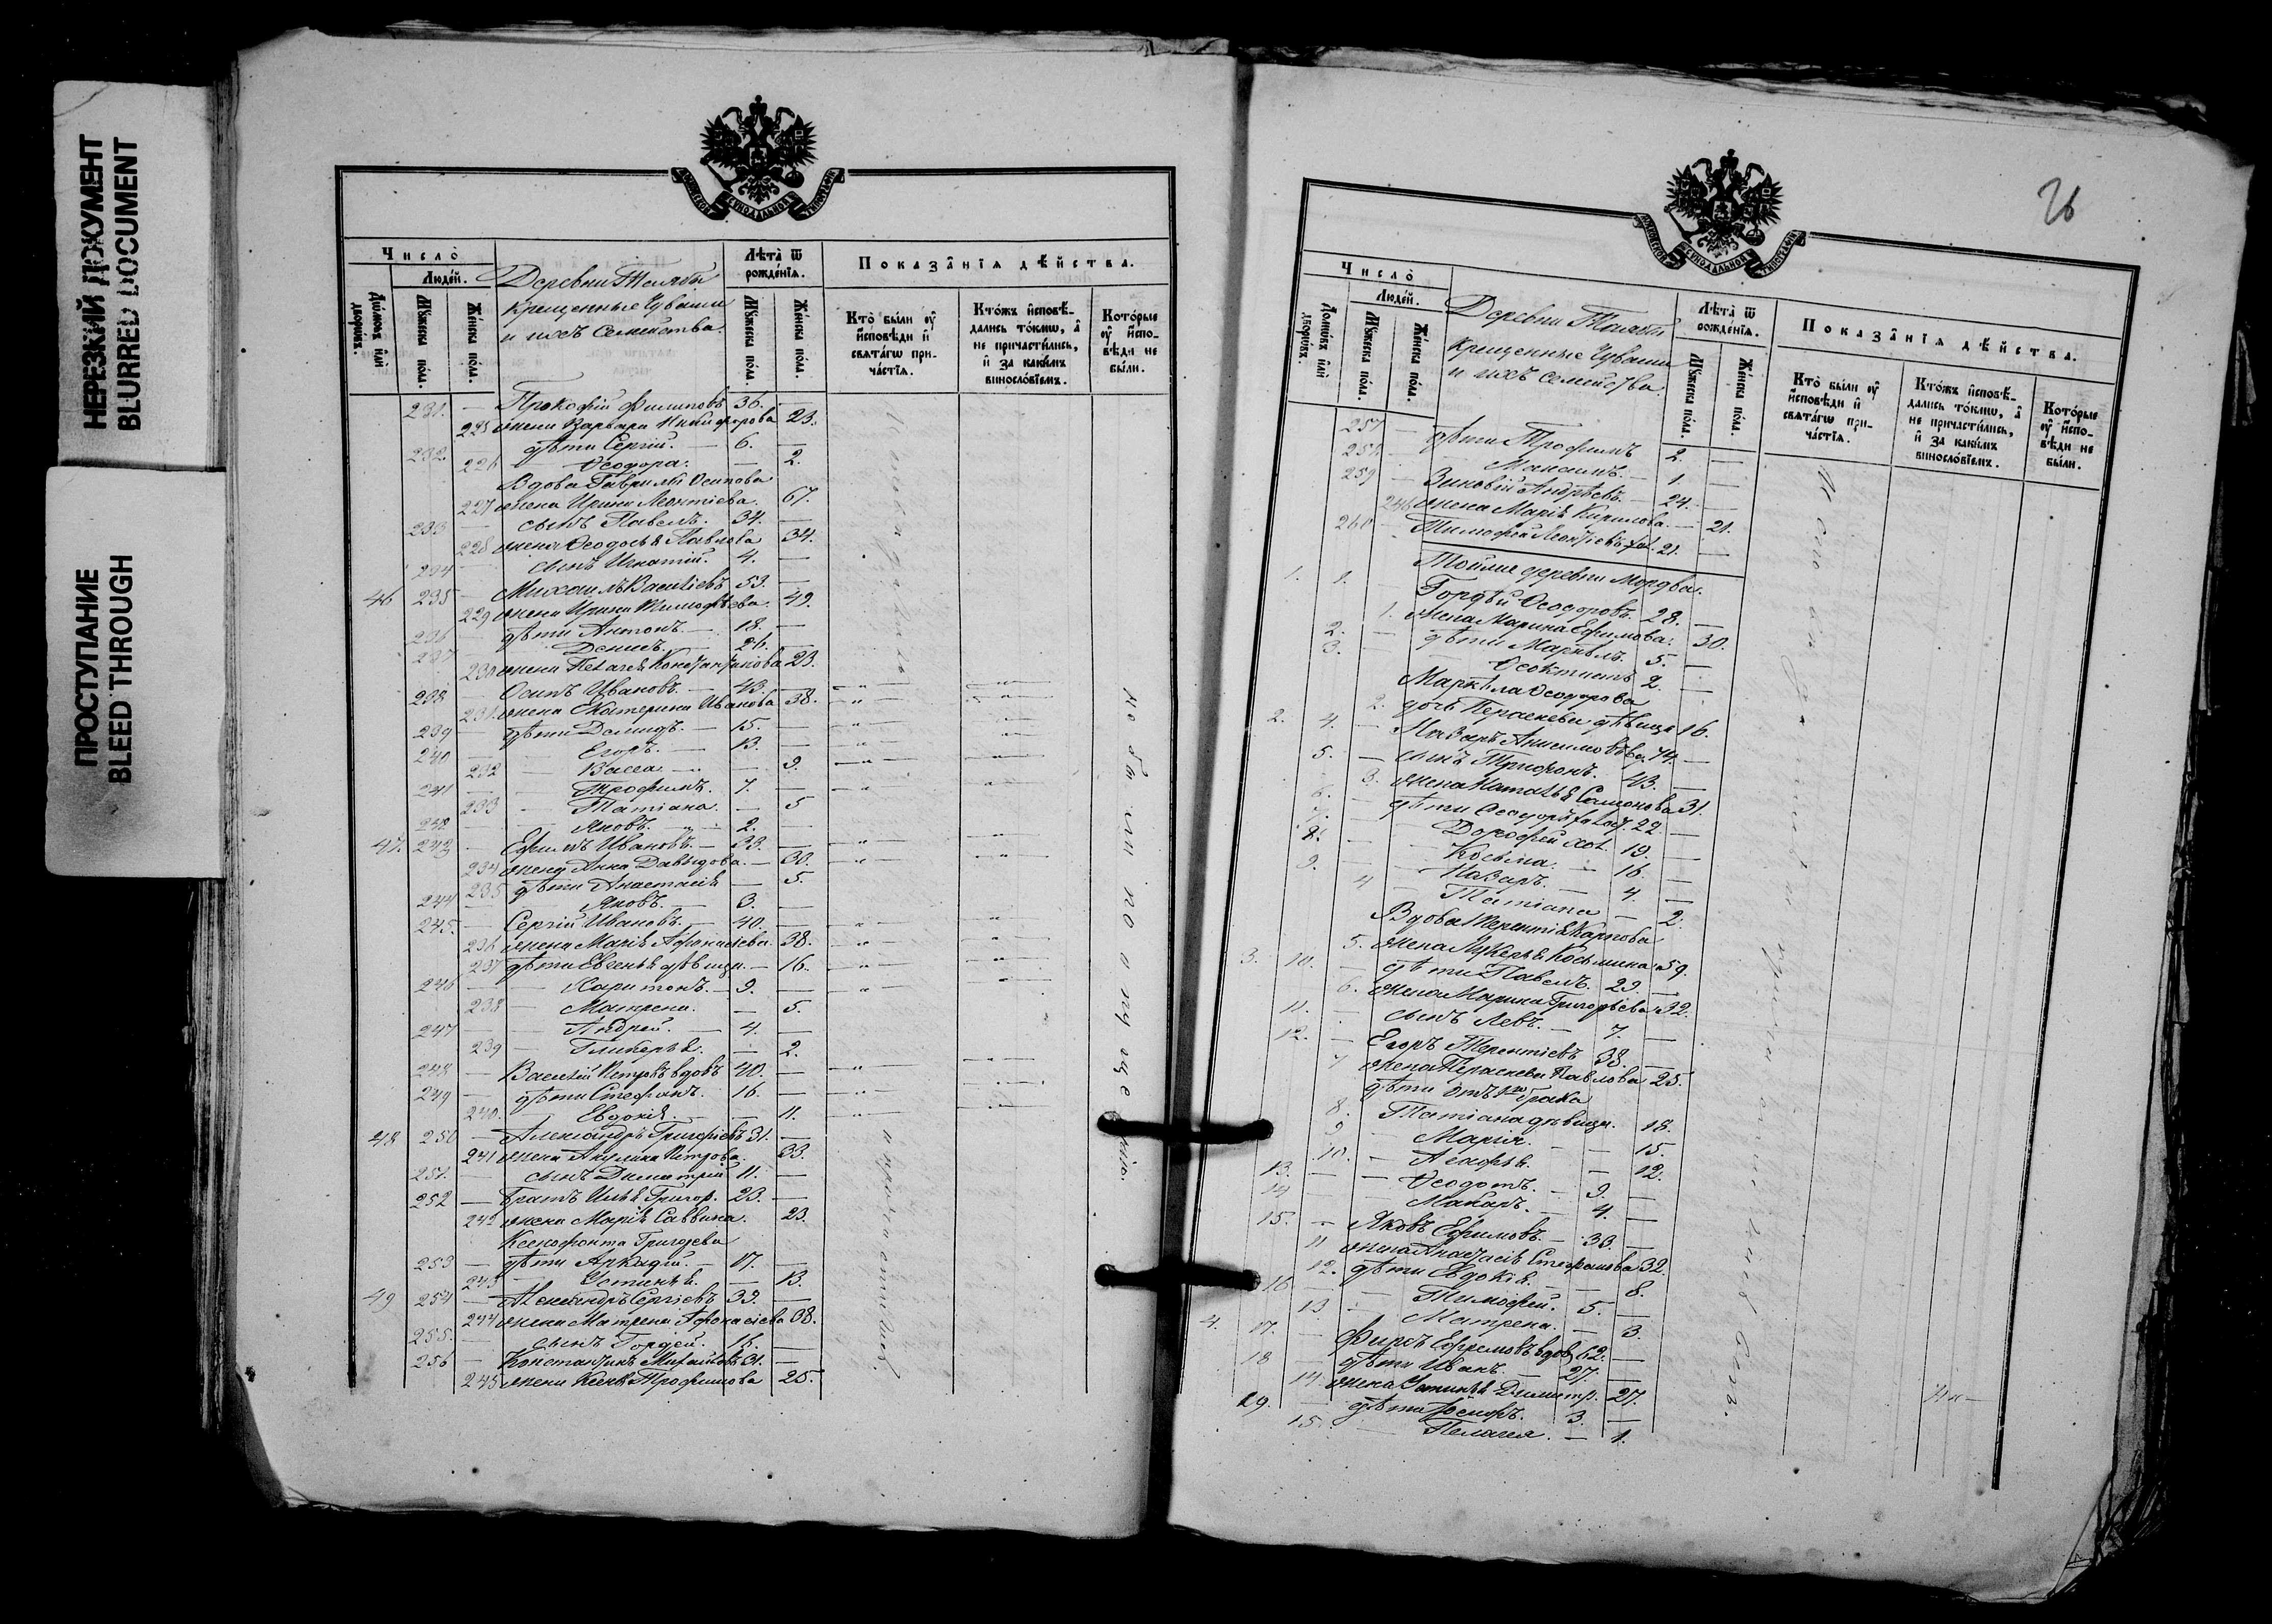 НЕРЕЗКИЙ ДОКУМЕНТ
BLURRED DOCUMENT
ПРОСТУПАНИЕ
BLEED THROUGH
МОСКОВСКОЙ СѴНОДАЛЬНОЙ ТИПОГРАФІИ
Число̀
Людей.
Домовъ или дворовъ.
Мужеска пола.
Женска пола.
Деревни
крещенные Чуваши
и ихъ семейства.
Лѣта̀ ѿ рожденія.
Мужеска пола.
Женска пола.
Показанія дѣйства.
Кто̀ были ѹ҆ исповѣди и свята́гѡ причастія.
Кто́жъ исповѣдались то́кмѡ, а̀ не причастились, и за каки́мъ винословіемъ.
Которые ѹ҆ исповѣди не были.
231. — Прокофій Филиповъ 36. —
225 жена Варвара Никифорова 23.
232. дѣти Сергій. — 6. —
226 Ѳеодора. — 2.
Вдова Гавриила Осипова
227 жена Ирина Леонтіева. 67.
233 — сынъ Павелъ. 34. —
228 жена Ѳеодосья Павлова 34.
234 — сынъ Игнатій. 4. —
46 235 — Михаилъ Васильевъ 53. —
229 жена Ирина Тимофѣева. 49.
236 дѣти Антонъ. — 18. —
237 Денисъ. — 26. —
230 жена Пелагея Константинова 23.
238 Осипъ Ивановъ. — 43. —
231. жена Екатерина Иванова 38.
239 — дѣти Демидъ. — 15. —
240 — Егоръ. — 13. —
232 — Васса. — 9.
241 — Трофимъ. 7. —
233 — Татіана. — 5
242 — Яковъ. — 2. —
47. 243 — Ефимъ Ивановъ. — 33. —
234 жена Анна Давыдова. — 30.
235 дѣти Анастасія — 5.
244 — Яковъ. — 3. —
245. — Сергій Ивановъ. — 40. —
236 жена Марія Афонасіева. 38.
237 дѣти Евгенья дѣвица. — 16.
246 — Харитонъ. — 9. —
238 — Матрена. — 5.
247 — Андрей. — 4. —
239 — Гликерья. — 2.
248 — Василій Петровъ вдовъ 40. —
249 — дѣти Стефанъ. 16. —
240. Евдокія. — 11.
48 250 — Александръ Григорьевъ 31. —
241 жена Акулина Петрова. 33.
251. — сынъ Димитрій 11. —
252 — Братъ Илья Григор. 23. —
242 жена Марія Саввина. 23.
Ксенофонта Григорьева
253 — дѣти Аркадій. — 17. —
243 — Устинья. — 13.
49 254 — Александръ Сергіевъ 39. —
244 жена Матрена Афонасіева 38.
255. — сынъ Гордей. 18. —
256 — Константинъ Михайловъ 31. —
245 жена Трофимова 25.
но были по опущенію.
26
МОСКОВСКОЙ СѴНОДАЛЬНОЙ ТИПОГРАФІИ
Число̀
Людей.
Домовъ или дворовъ.
Мужеска пола.
Женска пола.
Деревни
крещенные Чуваши
и ихъ семейства.
Лѣта̀ ѿ рожденія.
Мужеска пола.
Женска пола.
Показанія дѣйства.
Кто̀ были ѹ҆ исповѣди и свята́гѡ причастія.
Кто́жъ исповѣдались то́кмѡ, а̀ не причастились, и за каки́мъ винословіемъ.
Которые ѹ҆ исповѣди не были.
257 — дѣти Трофимъ 2. —
258 — Максимъ. — 1. —
259 — Зиновій Андрѣевъ. — 24. —
246 жена Марія Кирилова. — 21.
260 — Тимофей Леонтіевъ хол. 21. —
Тойже деревни Мордва.
1. 1. Гордѣй Ѳеодоровъ. 28. —
1. жена Марина Ефимова. 30.
2. — дѣти Маркелъ. 5. —
3. Ѳеоктистъ 2. —
Маркела Ѳеодорова
2. дочь Параскева дѣвица 16.
2. 4. — Назаръ Анисимовъ вд. 74. —
5. — сынъ Трифонъ. 43. —
3. жена Наталья Самсонова 31.
6. — дѣти Ѳеодоръ холост. 22 —
7. Дорофей хол. 19. —
8. — Косьма. — 16. —
9. Назаръ. — 4. —
4 — Татіана — 2.
Вдова Терентія Карпова
5. жена Лукерья Косьмина 59.
3. 10. — дѣти Павелъ. 29. —
6. жена Марина Григорьева 32.
11. — сынъ Левъ. — 7. —
12. — Егоръ Терентіевъ 38. —
7 жена Параскева Павлова 25.
дѣти отъ 1го брака
8. Татіана дѣвица. 18.
9 — Марія. — 15.
10. — Агафья. — 12.
13. — Ѳеодотъ. — 9. —
14 Макаръ. — 4. —
15. — Яковъ Ефимовъ. — 33. —
11 жена Анастасія Стефанова 32.
12. дѣти Евдокія. — 8.
16 — Тимофей. 5. —
13 Матрена. — 3.
4. 17. — Фирсъ Ефремовъ вдов. 62. —
18 — дѣти Иванъ. — 27. —
14. жена Устинья Димитр. 27.
19. — дѣти Іосифъ. 3. —
15. — Пелагея. — 1.